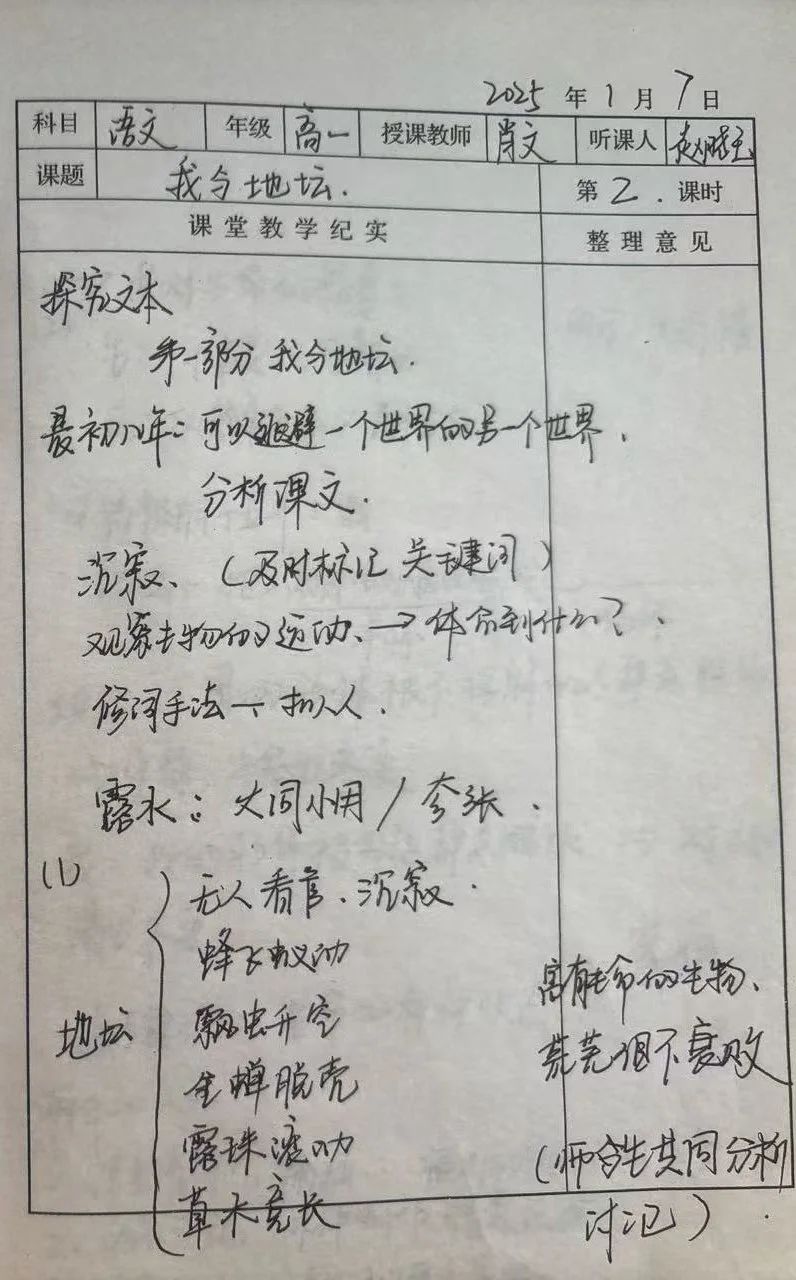 2025 年 1 月 7 日
科目 语文 年级 高一 授课教师 肖文 听课人 赵
课题 我与地坛. 第 2. 课时
课堂教学纪实 整理意见
探究文本
第一部分 我与地坛.
最初几年: 可以逃避一个世界的另一个世界.
分析课文.
沉寂、(及时标记 关键词)
观察生物的运动、→体会到什么?.
修词手法一: 拟人.
露水: 大词小用/夸张.
(1)
无人看管、沉寂.
蜂飞蚁动
瓢虫升空
金蝉脱壳
露珠滚动
草木竞长
地坛
富有生命的生物、
荒芜但不衰败
(师与生共同分析
讨论)